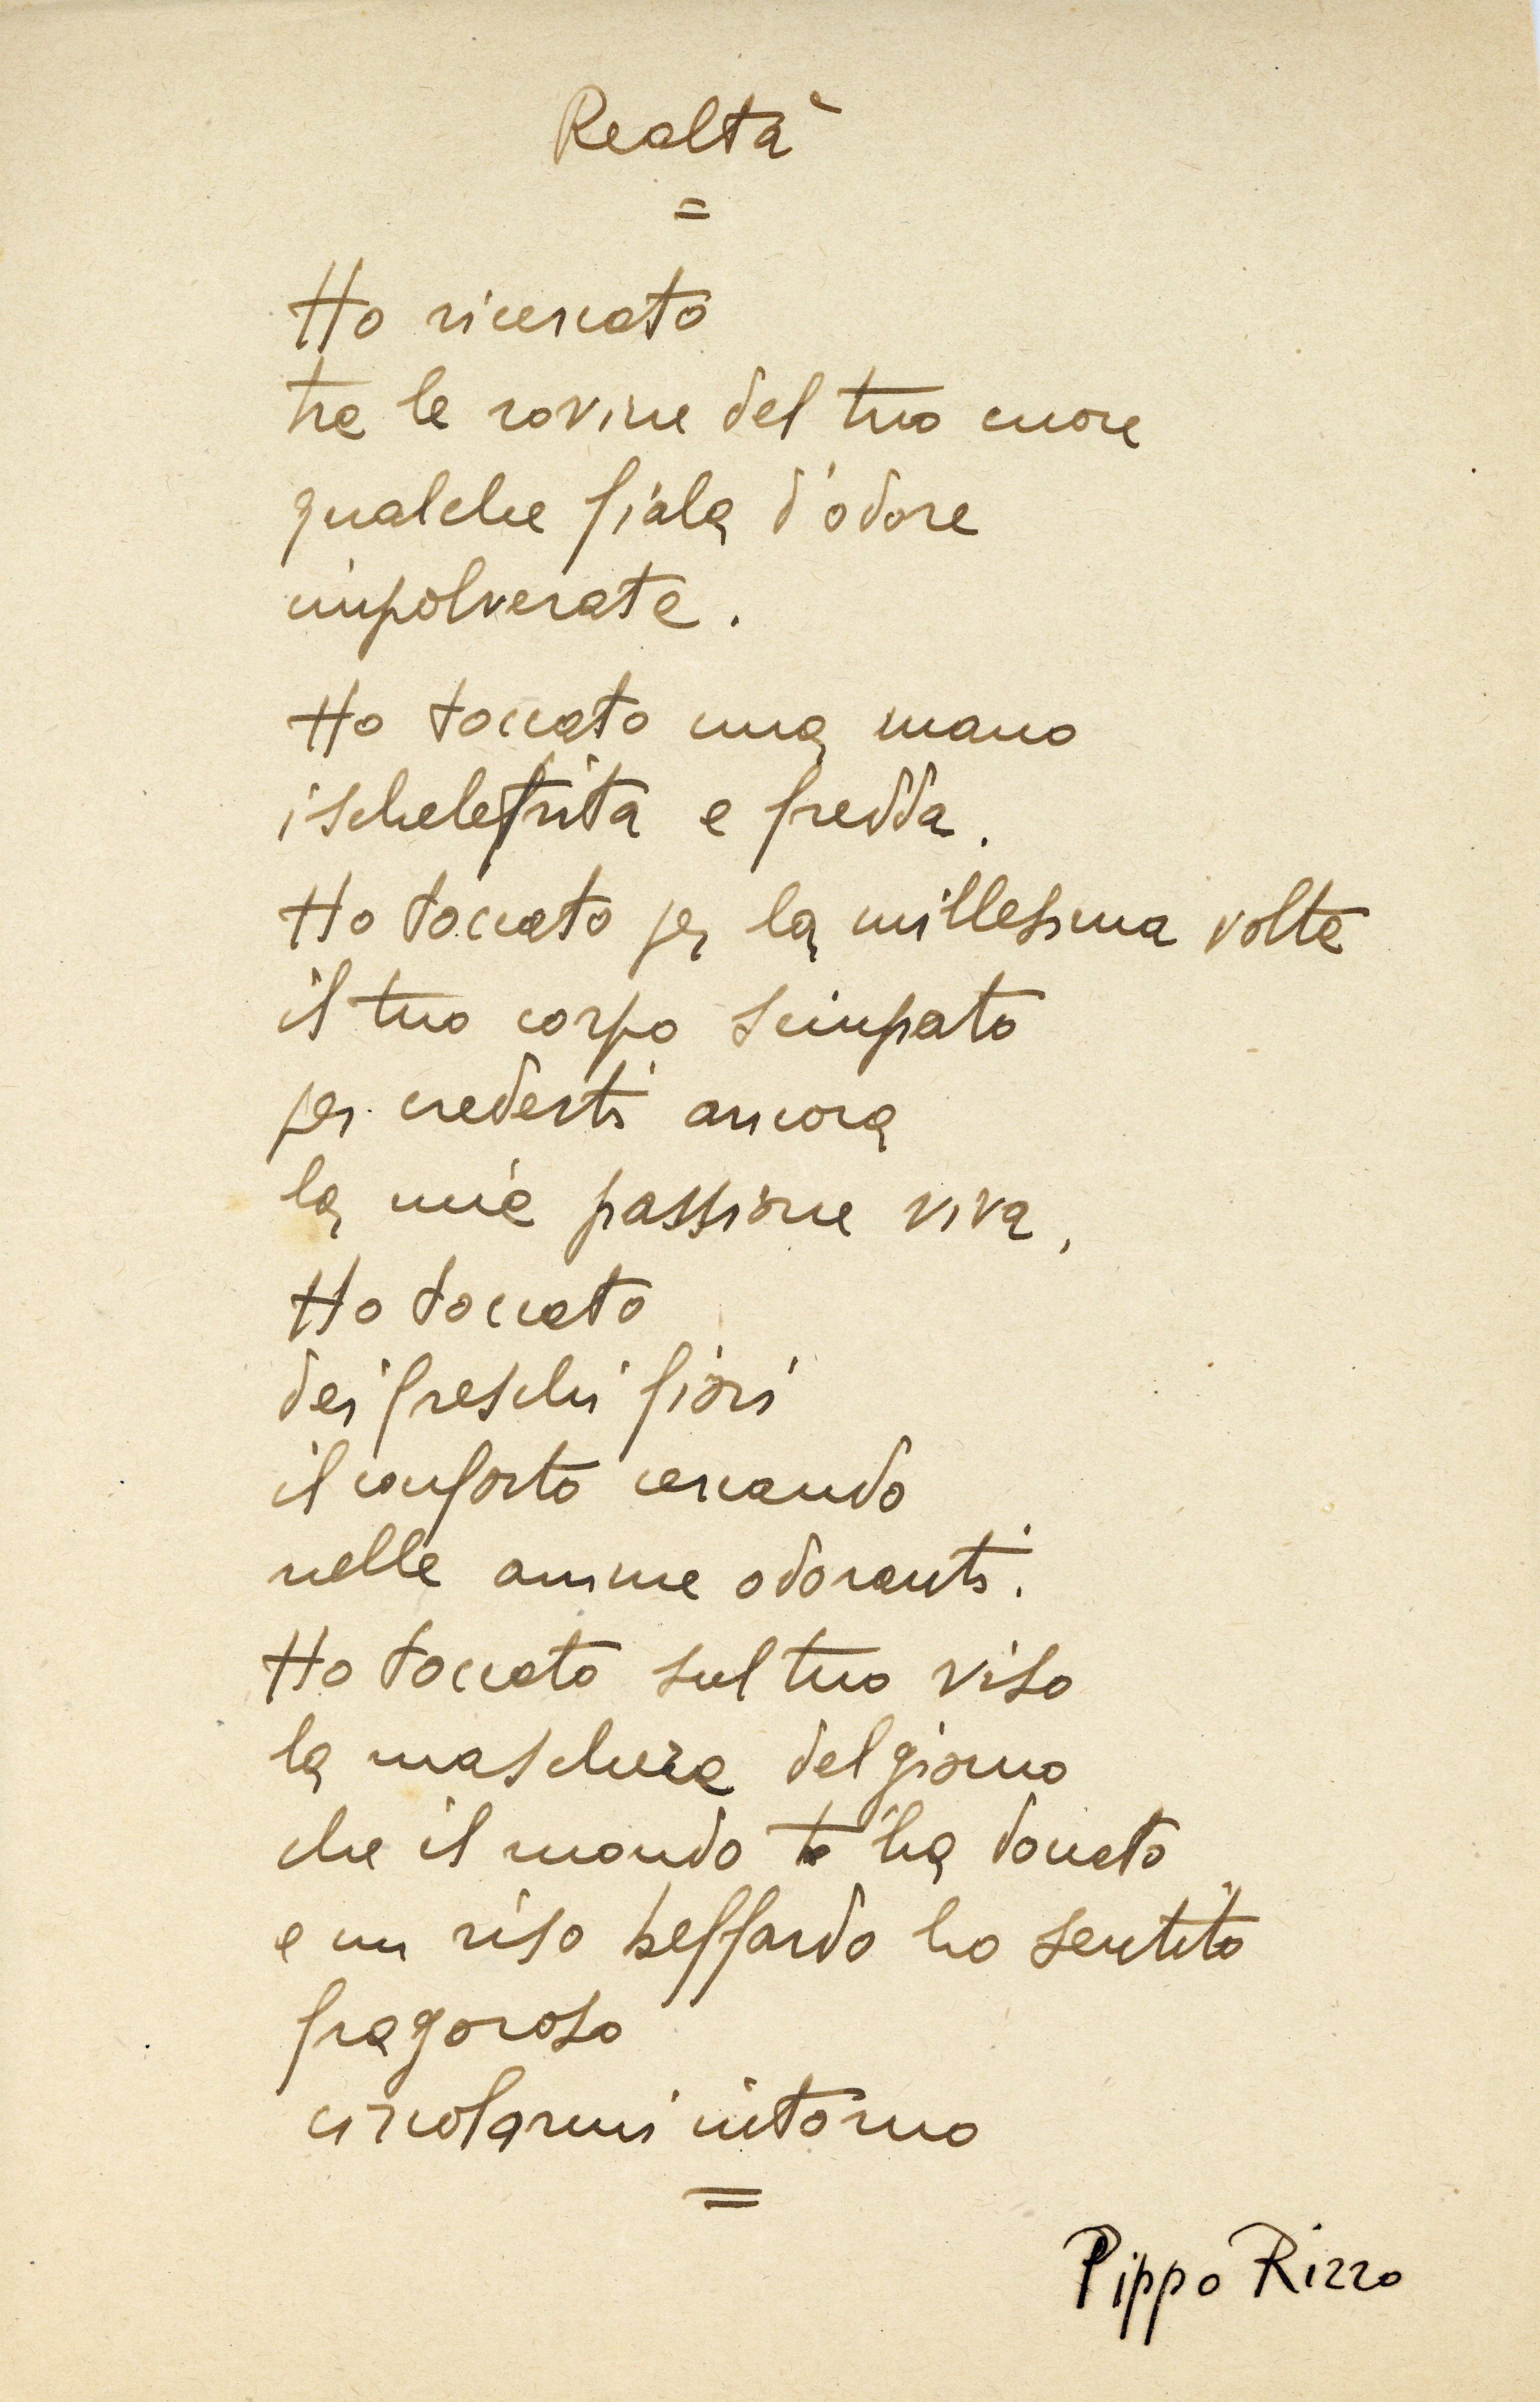 Realtà
=
Ho ricercato
tra le rovine del tuo cuore
qualche fiala d'odore
impolverata.
Ho toccato una mano
ischeletrita e fredda.
Ho toccato per la millesima volta
il tuo corpo sciupato
per crederti ancora
la mia passione viva,
Ho toccato
dei freschi fiori
il conforto cercando
nelle anime odoranti.
Ho toccato sul tuo viso
la maschera del giorno
che il mondo t'ha donato
e un riso beffardo ho sentito
fragoroso
circolarmi intorno
=
Pippo Rizzo